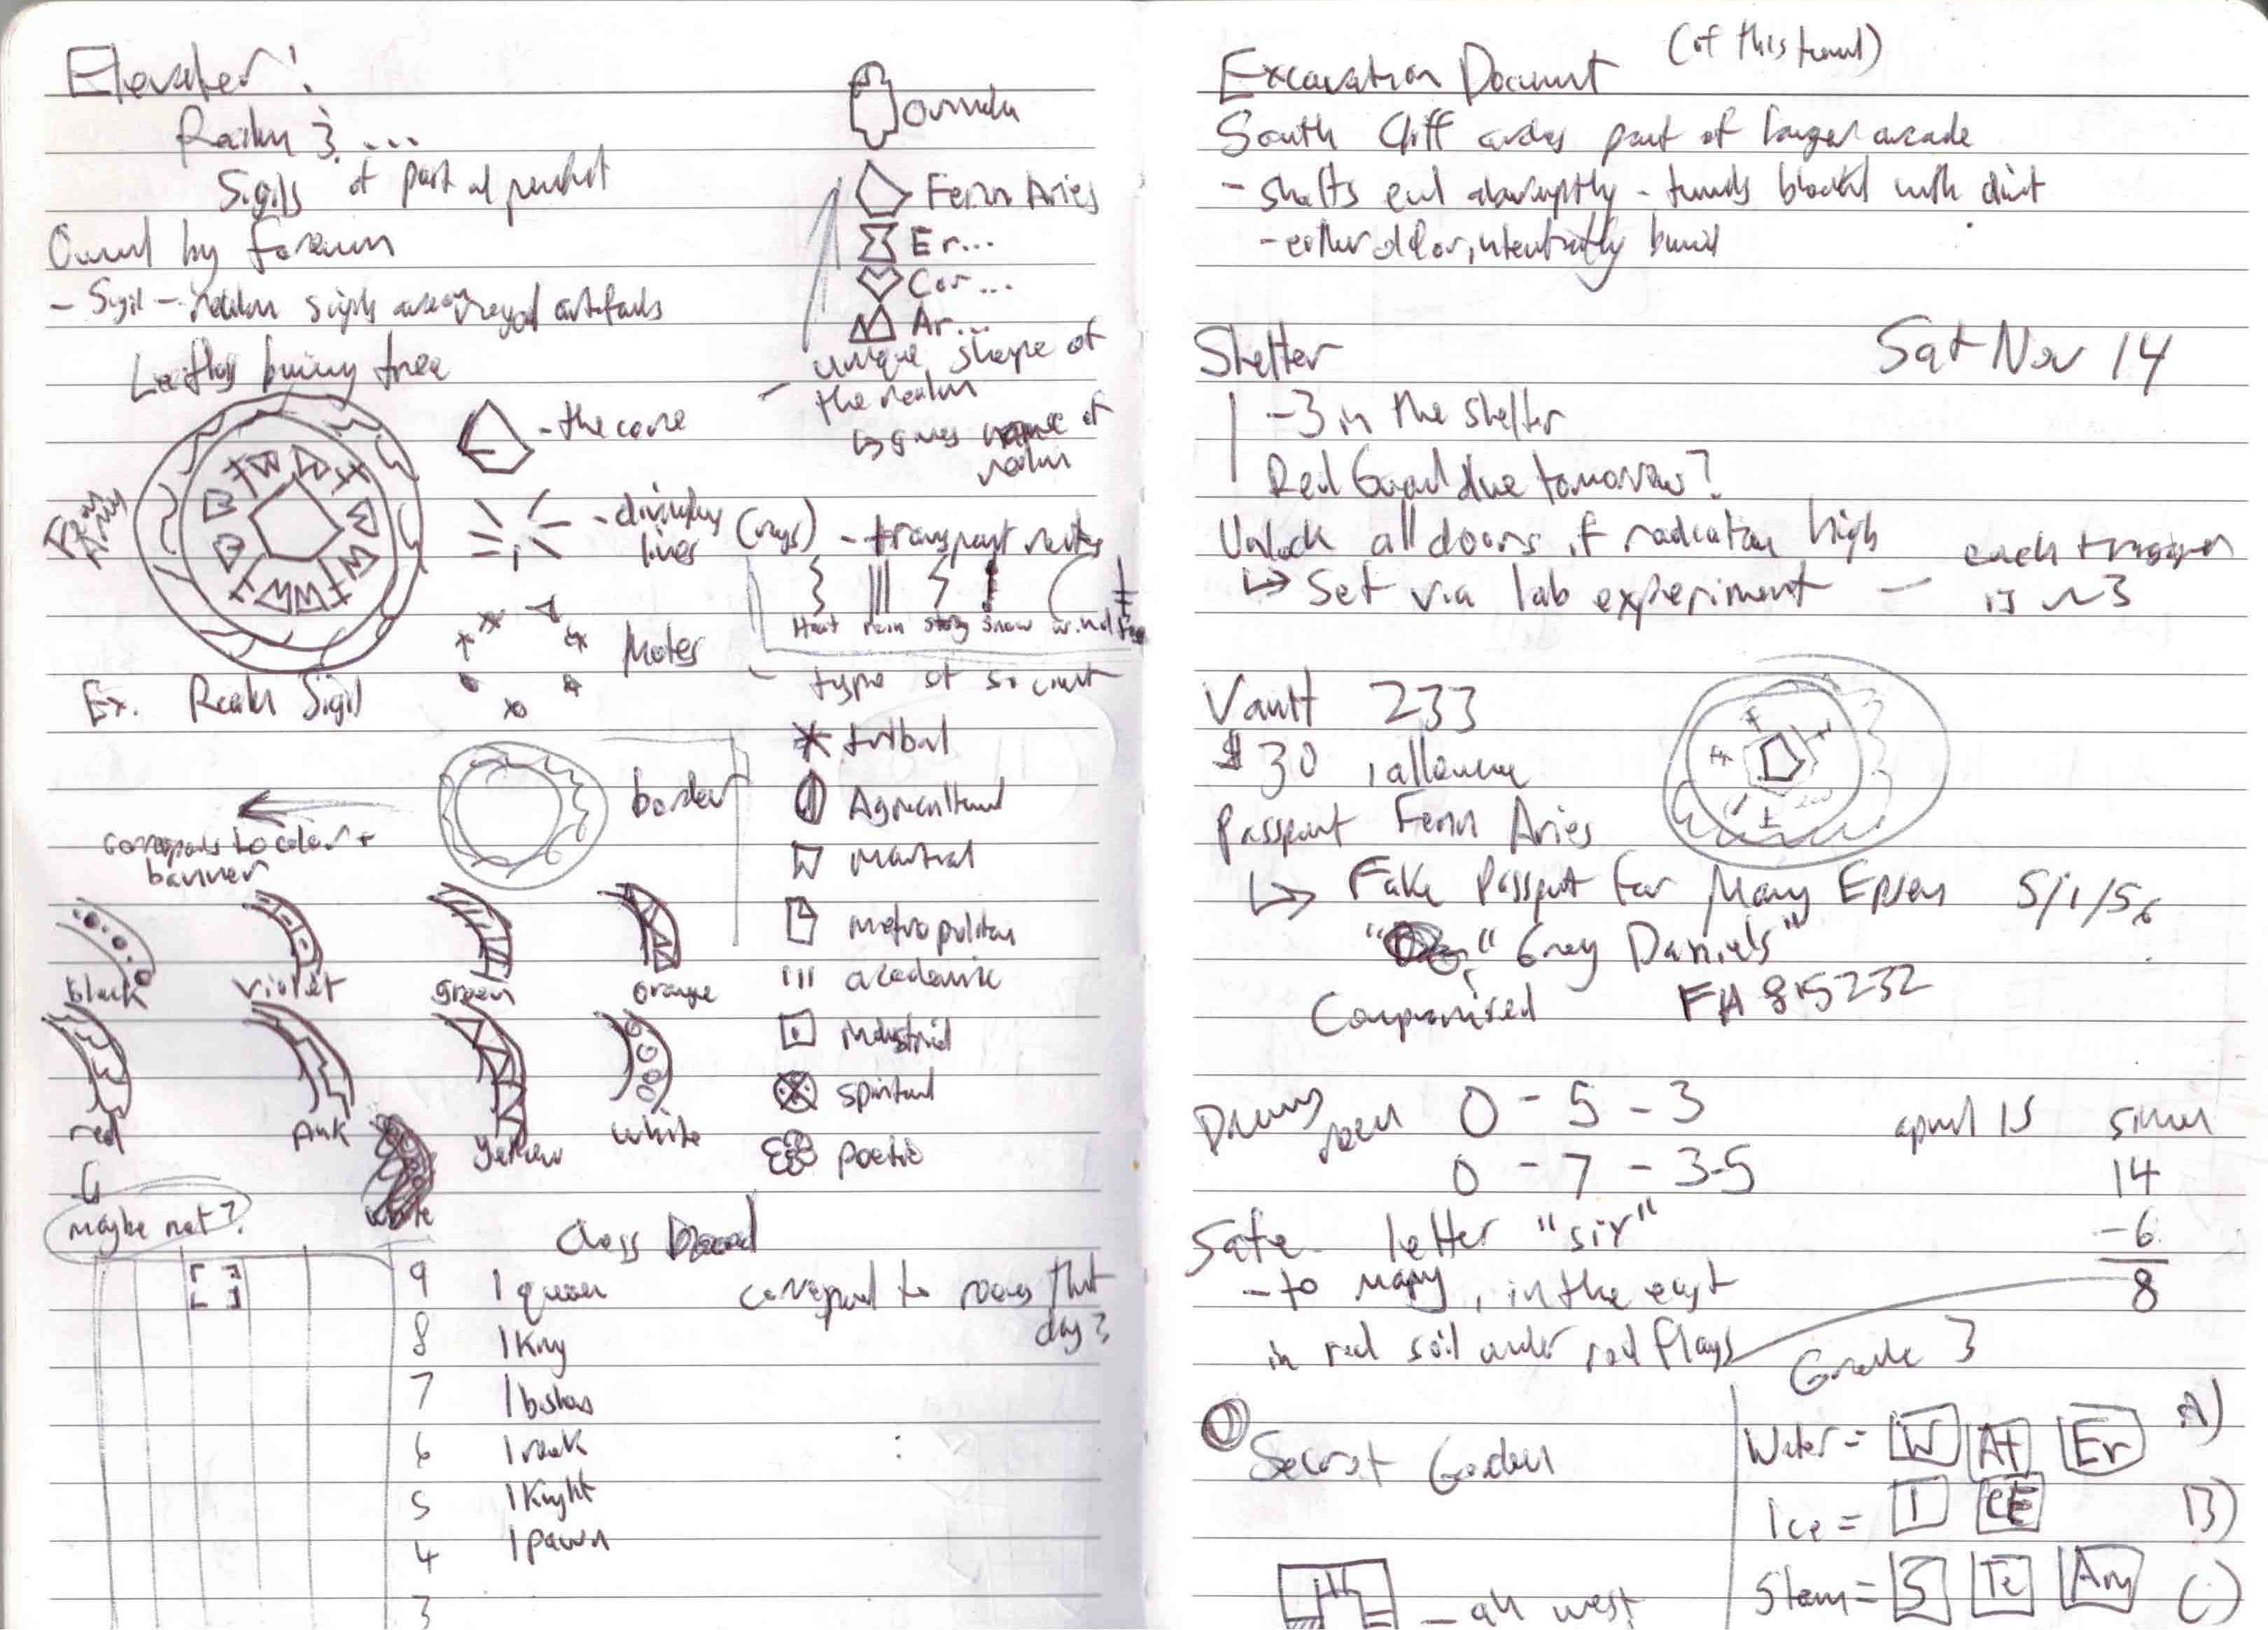 Elevator!
Realm 3 ...
Sigils of past and present
Owned by foreman
- Sigil - realm sigils are royal artifacts
Leafless burning tree
Ex. Realm Sigil
- the core
- dividing lines (rays) - transport routes
Heat rain snow wind
Motes
- type of
border
corresponds to color + banner
black violet green orange
red pink yellow white
maybe not?
Orinda
Fenn Aries
Er...
Cor...
Ar...
- unique shape of
the realm
↳ gives name of
realm
tribal
Agricultural
Martial
Metropolitan
academic
industrial
spiritual
poetic
9 1 queen
8 1 King
7 1 bishop
6 1 rook
5 1 Knight
4 1 pawn
3
correspond to rooms that
day?
Excavation Document (of this tunnel)
South Cliff part of larger arcade
- shafts end abruptly - tunnels blocked with dirt
- either old or intentionally buried
Shelter Sat Nov 14
- 3 in the shelter
Red Guard due tomorrow?
Unlock all doors if radiation high
↳ Set via lab experiment - each trigger
is ~3
Vault 233
$30 allowance
Passport Fenn Aries
↳ Fake Passport for Mary Epsen 5/1/56
"Grey Daniels"
Compromised FA 815232
Drawing room 0 - 5 - 3 april 15
0 - 7 - 3.5 14
- 6
8
Safe letter "six"
- to mary, in the east
in red soil under red flags
Grade 3
Secret Garden
Water = W At Er A)
Ice = I CE B)
Steam = S Te Am C)
- all west